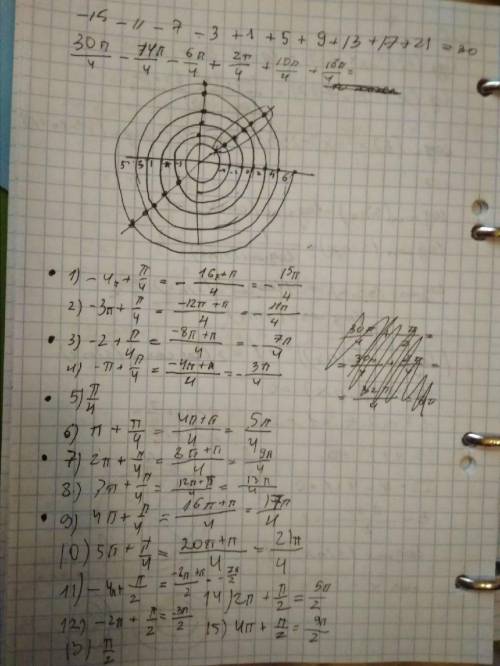 -15 - 11 - 7 - 3 + 1 + 5 + 9 + 13 + 17 + 21 = 20
30π/4 - 14π/4 - 6π/4 + 2π/4 + 10π/4 + 18π/4 =
5 3 1
2 4 6
1) -4π + π/4 = - 16π+π/4 = - 15π/4
2) -3π + π/4 = -12π+π/4 = - 11π/4
3) -2 + π/4 = -8π+π/4 = - 7π/4
4) -π + π/4 = -4π+π/4 = - 3π/4
5) π/4
6) π + π/4 = 4π+π/4 = 5π/4
7) 2π + π/4 = 8π+π/4 = 9π/4
8) 3π + π/4 = 12π+π/4 = 13π/4
9) 4π + π/4 = 16π+π/4 = 17π/4
10) 5π + π/4 = 20π+π/4 = 21π/4
11) -4π + π/2 = -8π+π/2 = - 7π/2
12) -2π + π/2 = 3π/2
13) π/2
14) 2π + π/2 = 5π/2
15) 4π + π/2 = 9π/2